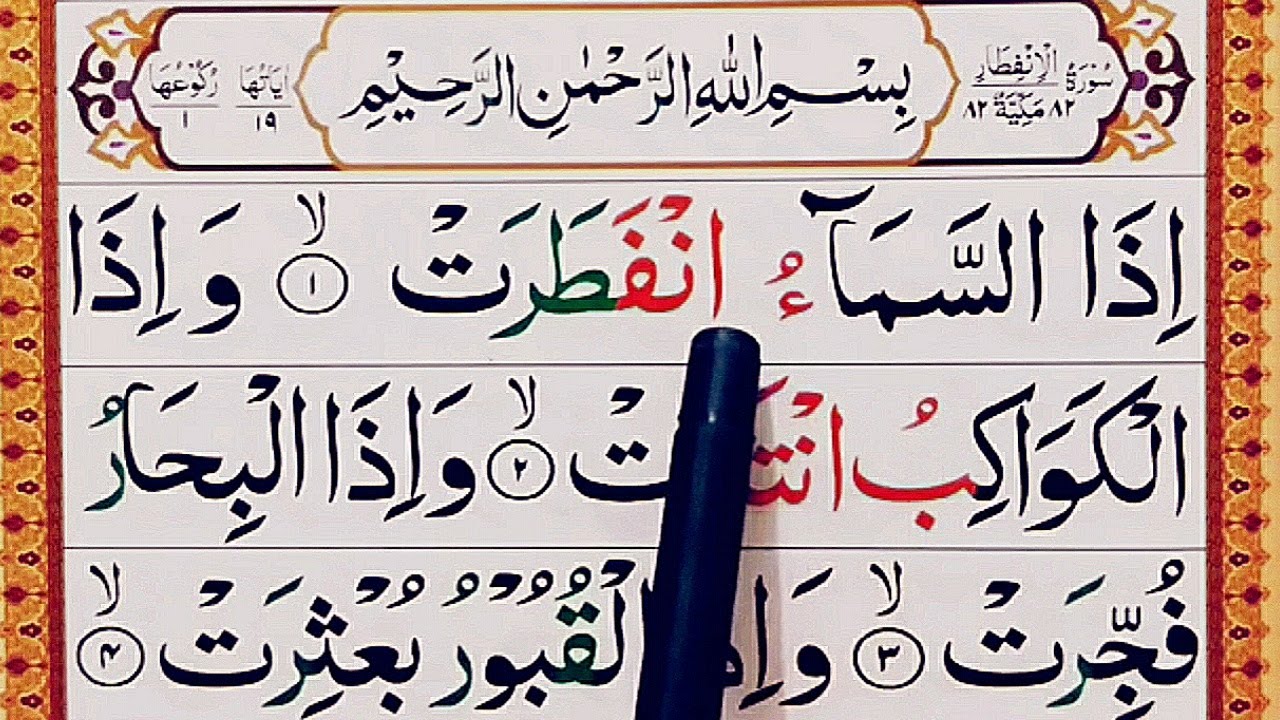 سُوْرَةُ الْاِنْفِطَارِ
٨٢ مَكِّيَّةٌ ٨٢
بِسْمِ اللّٰهِ الرَّحْمٰنِ الرَّحِيْمِ
اٰيَاتُهَا ١٩
رُكُوْعُهَا ١
اِذَا السَّمَآءُ انْفَطَرَتْ ۙ﴿١﴾ وَ اِذَا
الْكَوَاكِبُ ۙ﴿٢﴾ وَ اِذَا الْبِحَارُ
فُجِّرَتْ ۙ﴿٣﴾ وَ الْقُبُوْرُ بُعْثِرَتْ ۙ﴿۴﴾